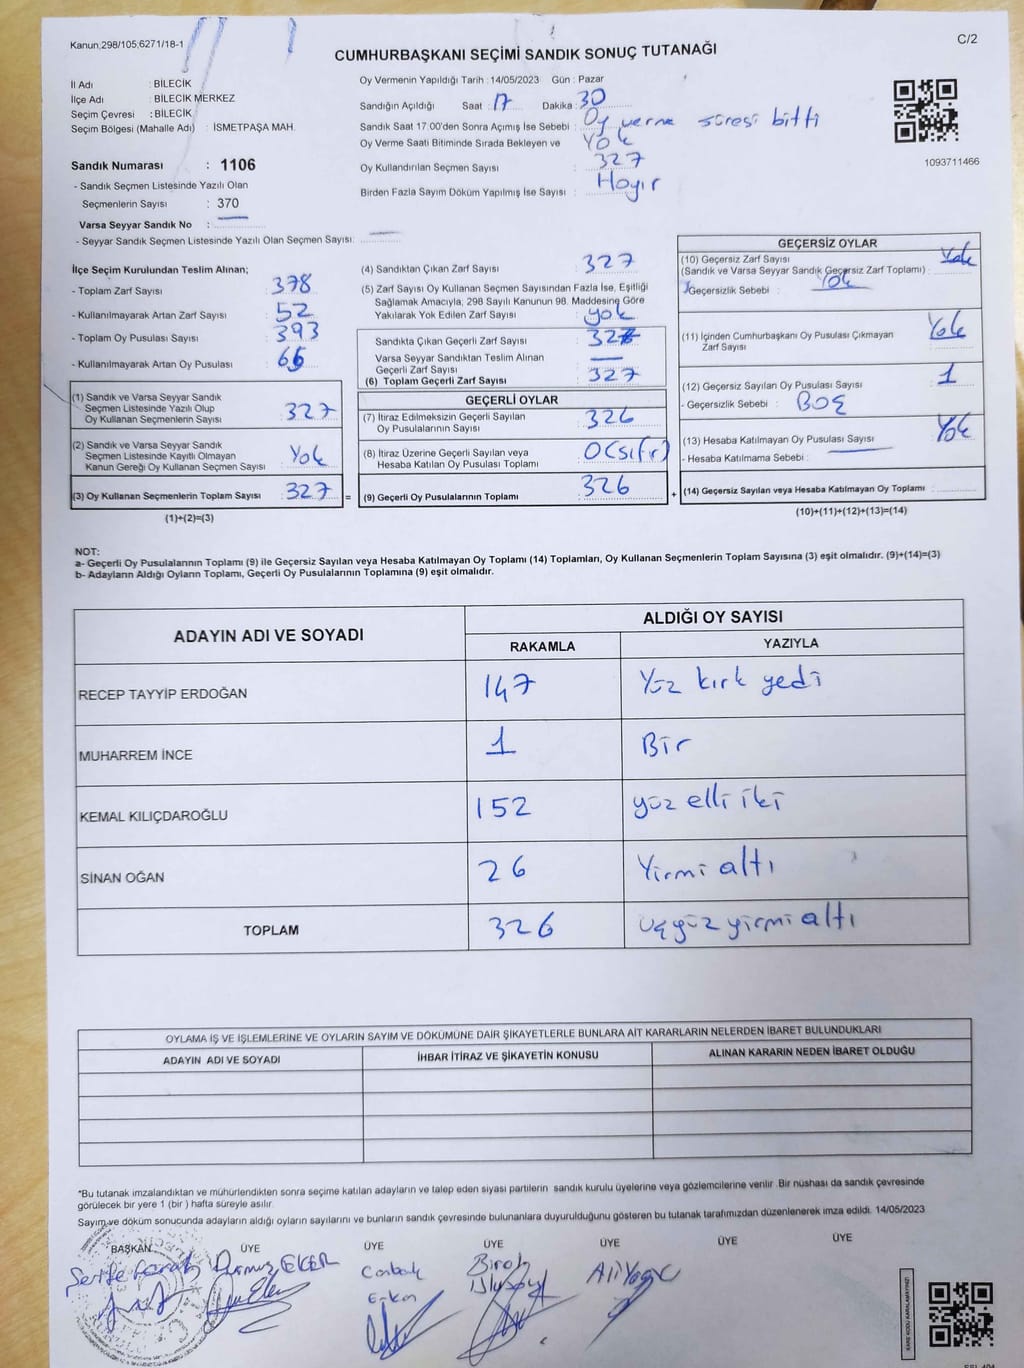 Kanun;298/105;6271/18-1
C/2
CUMHURBAŞKANI SEÇİMİ SANDIK SONUÇ TUTANAĞI
İl Adı : BİLECİK
İlçe Adı : BİLECİK MERKEZ
Seçim Çevresi : BİLECİK
Seçim Bölgesi (Mahalle Adı) : İSMETPAŞA MAH.
Sandık Numarası : 1106
- Sandık Seçmen Listesinde Yazılı Olan
Seçmenlerin Sayısı : 370
Varsa Seyyar Sandık No :
- Seyyar Sandık Seçmen Listesinde Yazılı Olan Seçmen Sayısı:
Oy Vermenin Yapıldığı Tarih : 14/05/2023 Gün : Pazar
Sandığın Açıldığı Saat : 17 Dakika : 30
Sandık Saat 17:00'den Sonra Açımış İse Sebebi : Oy verme süresi bitti
Oy Verme Saati Bitiminde Sırada Bekleyen ve Yok
Oy Kullandırılan Seçmen Sayısı : 327
Birden Fazla Sayım Döküm Yapılmış İse Sayısı : Hayır
1093711466
İlçe Seçim Kurulundan Teslim Alınan;
- Toplam Zarf Sayısı : 378
- Kullanılmayarak Artan Zarf Sayısı : 52
- Toplam Oy Pusulası Sayısı : 393
- Kullanılmayarak Artan Oy Pusulası : 66
(1) Sandık ve Varsa Seyyar Sandık
Seçmen Listesinde Yazılı Olup
Oy Kullanan Seçmenlerin Sayısı : 327
(2) Sandık ve Varsa Seyyar Sandık
Seçmen Listesinde Kayıtlı Olmayan
Kanun Gereği Oy Kullanan Seçmen Sayısı : Yok
(3) Oy Kullanan Seçmenlerin Toplam Sayısı : 327 =
(1)+(2)=(3)
(4) Sandıktan Çıkan Zarf Sayısı : 327
(5) Zarf Sayısı Oy Kullanan Seçmen Sayısından Fazla İse, Eşitliği
Sağlamak Amacıyla, 298 Sayılı Kanunun 98. Maddesine Göre
Yakılarak Yok Edilen Zarf Sayısı : yok
Sandıkta Çıkan Geçerli Zarf Sayısı : 327
Varsa Seyyar Sandıktan Teslim Alınan
Geçerli Zarf Sayısı :
(6) Toplam Geçerli Zarf Sayısı : 327
GEÇERLİ OYLAR
(7) İtiraz Edilmeksizin Geçerli Sayılan
Oy Pusulalarının Sayısı : 326
(8) İtiraz Üzerine Geçerli Sayılan veya
Hesaba Katılan Oy Pusulası Toplamı : 0(sıfır)
(9) Geçerli Oy Pusulalarının Toplamı : 326 +
GEÇERSİZ OYLAR
(10) Geçersiz Zarf Sayısı
(Sandık ve Varsa Seyyar Sandık Geçersiz Zarf Toplamı) : Yok
- Geçersizlik Sebebi : Yok
(11) İçinden Cumhurbaşkanı Oy Pusulası Çıkmayan
Zarf Sayısı : Yok
(12) Geçersiz Sayılan Oy Pusulası Sayısı : 1
- Geçersizlik Sebebi : BOŞ
(13) Hesaba Katılmayan Oy Pusulası Sayısı : Yok
- Hesaba Katılmama Sebebi :
(14) Geçersiz Sayılan veya Hesaba Katılmayan Oy Toplamı :
(10)+(11)+(12)+(13)=(14)
NOT:
a- Geçerli Oy Pusulalarının Toplamı (9) ile Geçersiz Sayılan veya Hesaba Katılmayan Oy Toplamı (14) Toplamları, Oy Kullanan Seçmenlerin Toplam Sayısına (3) eşit olmalıdır. (9)+(14)=(3)
b- Adayların Aldığı Oyların Toplamı, Geçerli Oy Pusulalarının Toplamına (9) eşit olmalıdır.
ADAYIN ADI VE SOYADI
ALDIĞI OY SAYISI
RAKAMLA YAZIYLA
RECEP TAYYİP ERDOĞAN 147 Yüz kırk yedi
MUHARREM İNCE 1 Bir
KEMAL KILIÇDAROĞLU 152 yüz elli iki
SİNAN OĞAN 26 Yirmi altı
TOPLAM 326 üçyüz yirmi altı
OYLAMA İŞ VE İŞLEMLERİNE VE OYLARIN SAYIM VE DÖKÜMÜNE DAİR ŞİKAYETLERLE BUNLARA AİT KARARLARIN NELERDEN İBARET BULUNDUKLARI
ADAYIN ADI VE SOYADI İHBAR İTİRAZ VE ŞİKAYETİN KONUSU ALINAN KARARIN NEDEN İBARET OLDUĞU
*Bu tutanak imzalandıktan ve mühürlendikten sonra seçime katılan adayların ve talep eden siyasi partilerin sandık kurulu üyelerine veya gözlemcilerine verilir. Bir nüshası da sandık çevresinde
görülecek bir yere 1 (bir ) hafta süreyle asılır.
Sayım ve döküm sonucunda adayların aldığı oyların sayılarını ve bunların sandık çevresinde bulunanlara duyurulduğunu gösteren bu tutanak tarafımızdan düzenlenerek imza edildi. 14/05/2023
BAŞKAN ÜYE ÜYE ÜYE ÜYE ÜYE ÜYE
Durmuş EKER